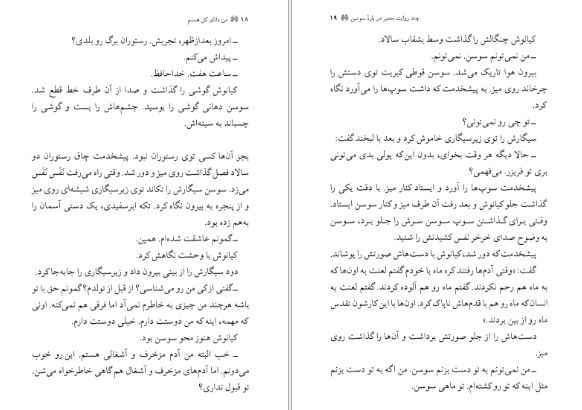 ۱۸ من دانای کل هستم
ـ امروز بعدازظهر، تجریش. رستوران برگ رو بلدی؟
ـ پیداش می‌کنم.
ـ ساعت هفت. خداحافظ.
کیانوش گوشی را گذاشت و صدا از آن طرف خط قطع شد.
سوسن دهانی گوشی را بوسید. چشم‌هاش را بست و گوشی را
چسباند به سینه‌اش.
بجز آن‌ها کسی توی رستوران نبود. پیشخدمت چاق رستوران دو
سالاد فصل گذاشت روی میز و دور شد. وقتی راه می‌رفت نَفَس نَفَس
می‌زد. سوسن سیگارش را تکاند توی زیرسیگاری شیشه‌ای روی میز
و از پنجره به بیرون نگاه کرد. تکه ابر سفیدی، یک دستی آسمان را
به‌هم زده بود.
ـ گمونم عاشقت شده‌ام. همین.
کیانوش با وحشت نگاهش کرد.
دود سیگارش را از بینی بیرون داد و زیرسیگاری را جابه‌جا کرد.
ـ گفتی از کی من رو می‌شناسی؟ از قبل از تولدم؟ گمونم حق با تو
باشه هرچند من چیزی به خاطرم نمی‌آد اما فرقی هم نمی‌کنه. اونی
که مهمه، اینه که من دوستت دارم. خیلی دوستت دارم.
کیانوش هنوز محو سوسن بود.
ـ خب البته من آدم مزخرف و آشغالی هستم. این رو خوب
می‌دونم. اما آدم‌های مزخرف و آشغال هم گاهی خاطرخواه می‌شن.
تو قبول نداری؟
چند روایت معتبر در بارهٔ سوسن ۱۹
کیانوش چنگالش را گذاشت وسط بشقاب سالاد.
ـ من نمی‌تونم سوسن. نمی‌تونم.
بیرون هوا تاریک می‌شد. سوسن قوطی کبریت توی دستش را
چرخاند روی میز. به پیشخدمت که داشت سوپ‌ها را می‌آورد نگاه
کرد.
ـ تو چی رو نمی‌تونی؟
سیگارش را توی زیرسیگاری خاموش کرد و بعد با لبخند گفت:
ـ حالا دیگه هر وقت بخوای، بدون این‌که پولی بدی می‌تونی
بری تو فریزر. می‌فهمی؟
پیشخدمت سوپ‌ها را آورد و ایستاد کنار میز. با دقت یکی را
گذاشت جلو کیانوش و بعد رفت آن طرف میز و کنار سوسن ایستاد.
وقتی برای گذاشتن سوپ سوسن سرش را جلو برد، سوسن
به وضوح صدای خرخر نفس کشیدنش را شنید.
پیشخدمت که دور شد، کیانوش با دست‌هاش صورتش را پوشاند.
گفت: «وقتی آدم‌ها رفتند کره ماه با خودم گفتم لعنت به اون‌ها که
به ماه هم رحم نکردند. گفتم ماه رو هم آلوده کردند. گفتم لعنت به
انسان که ماه رو هم با قدم‌هاش ناپاک کرد. اون‌ها با این کارشون تقدس
ماه رو از بین بردند.»
دست‌هاش را از جلو صورتش برداشت و آن‌ها را گذاشت روی
میز.
ـ من نمی‌تونم به تو دست بزنم سوسن. من اگه به تو دست بزنم
مثل اینه که تو رو کشته‌ام. تو ماهی سوسن.